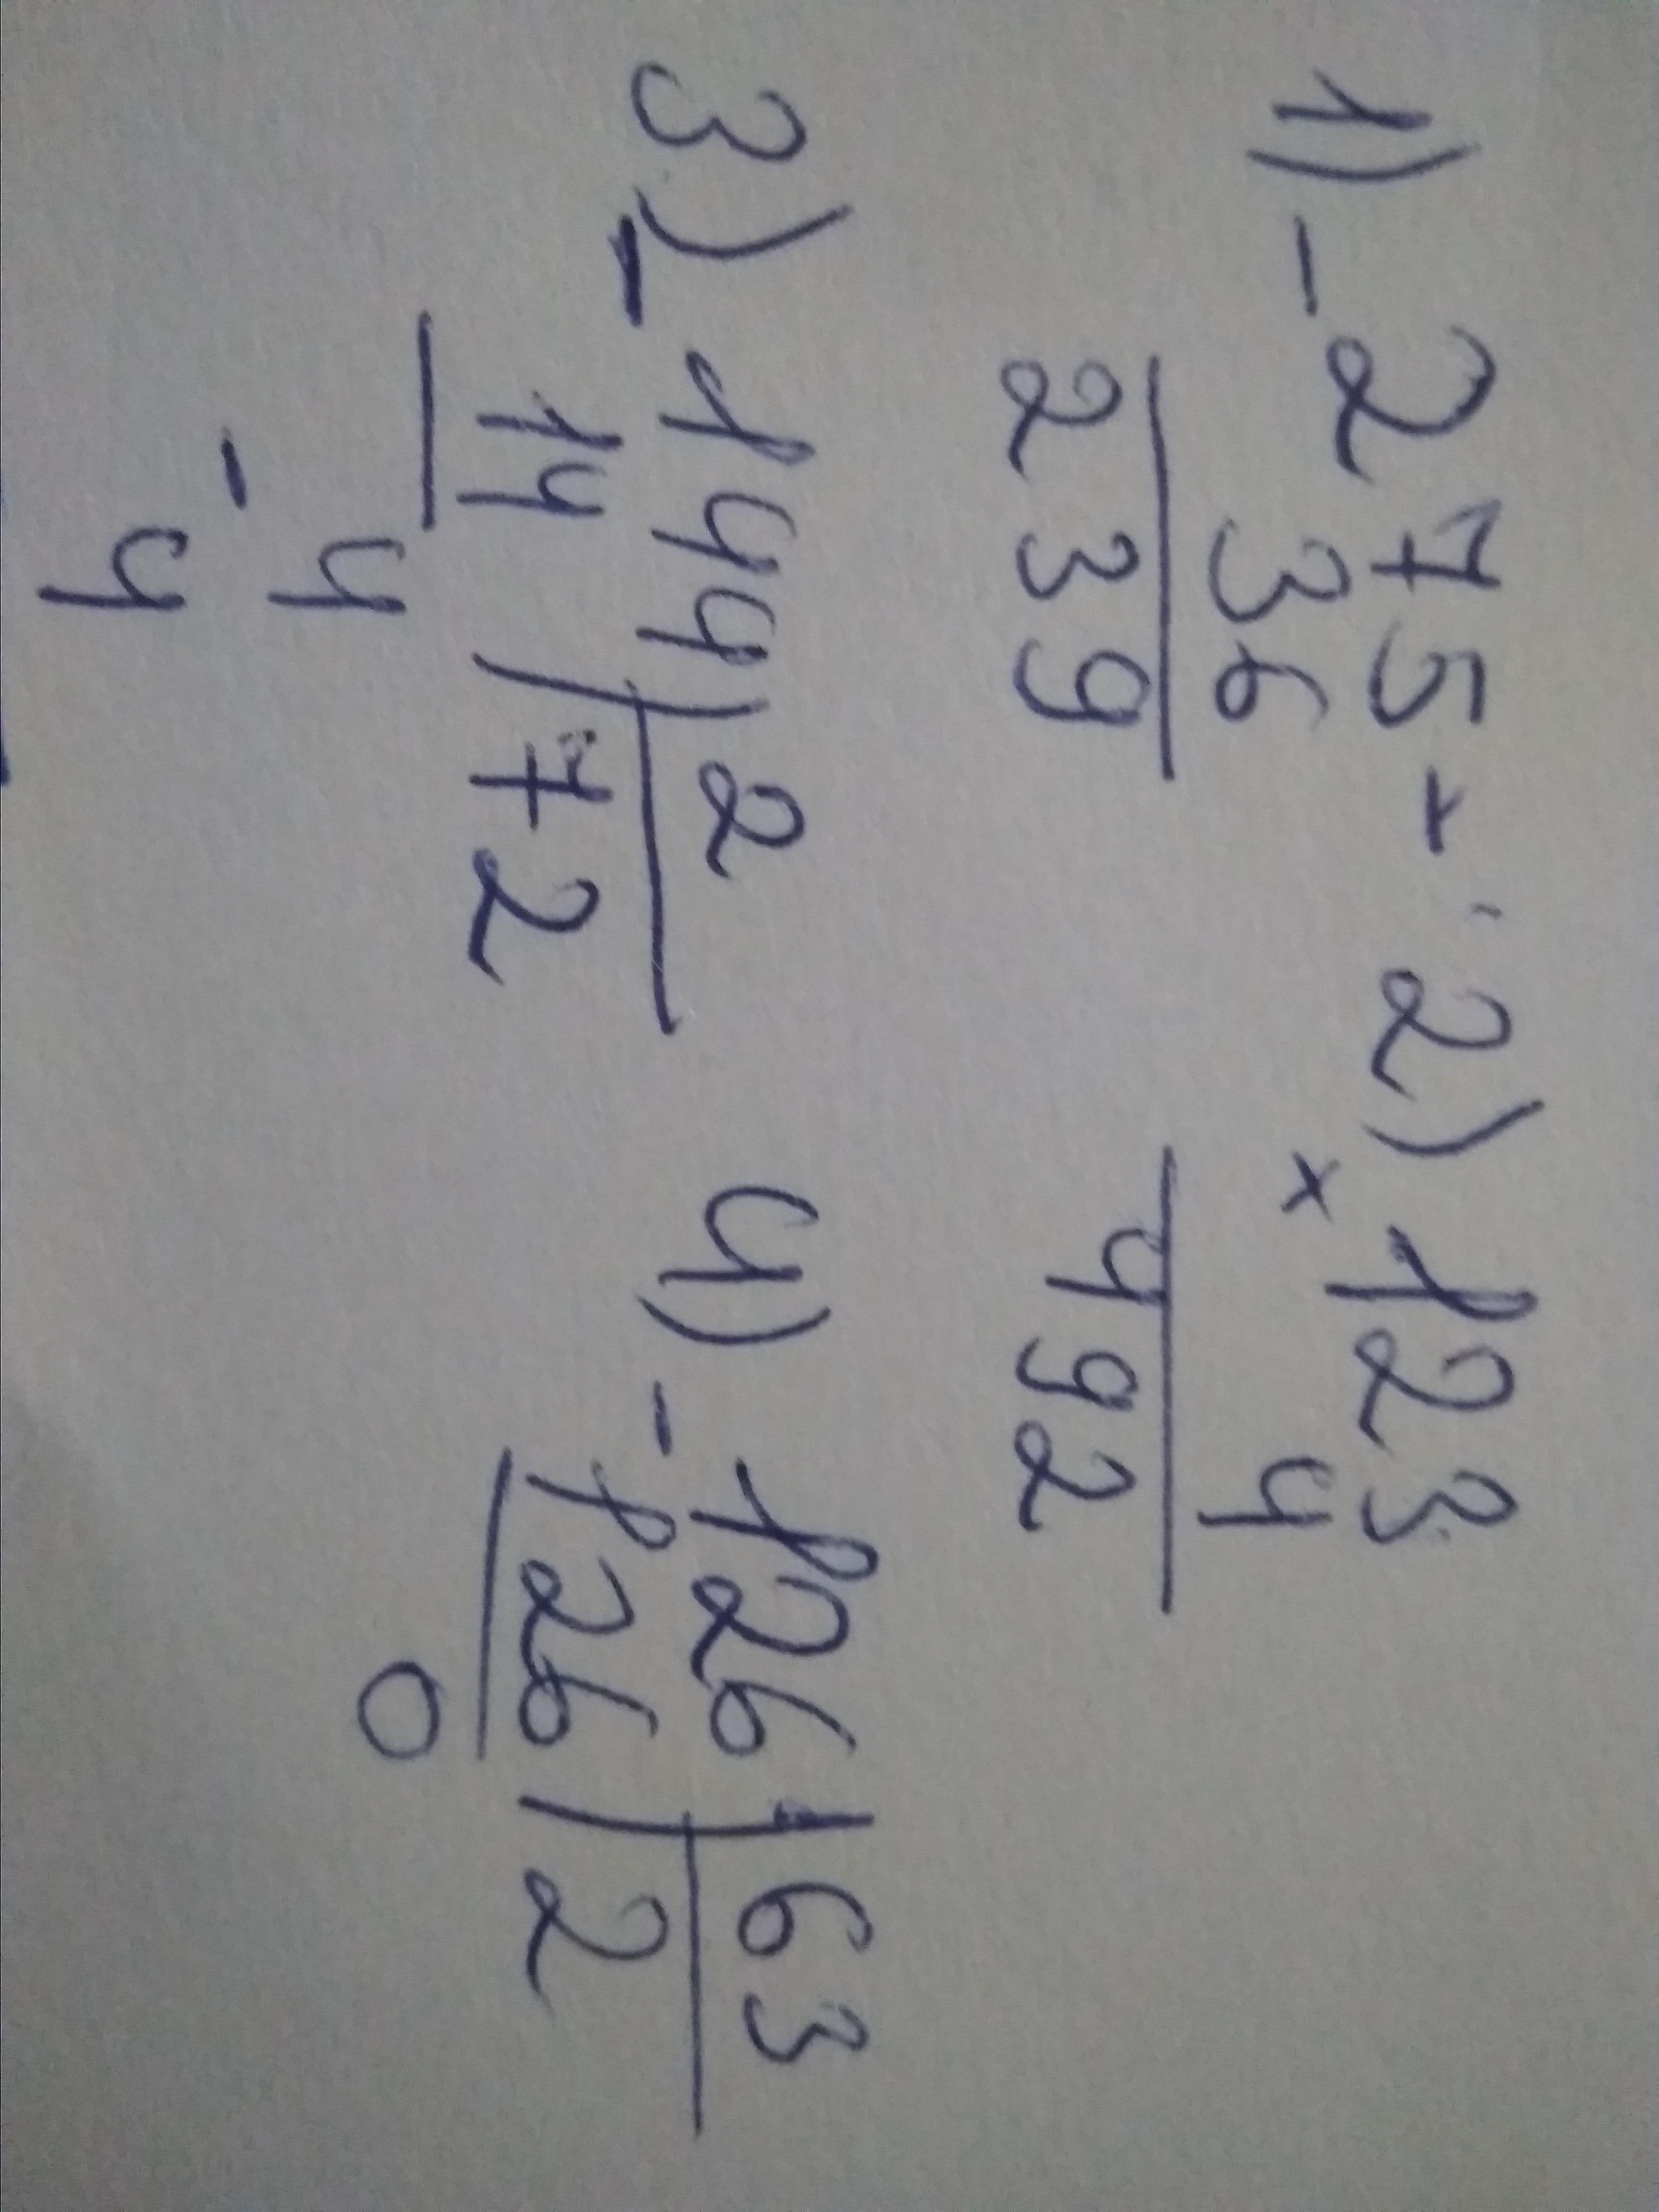 1) - 275 - 2) × 123
36 4
239 492
3) - 144 | 2 4) - 126 | 63
14 | 72 126 | 2
- 4 0
4